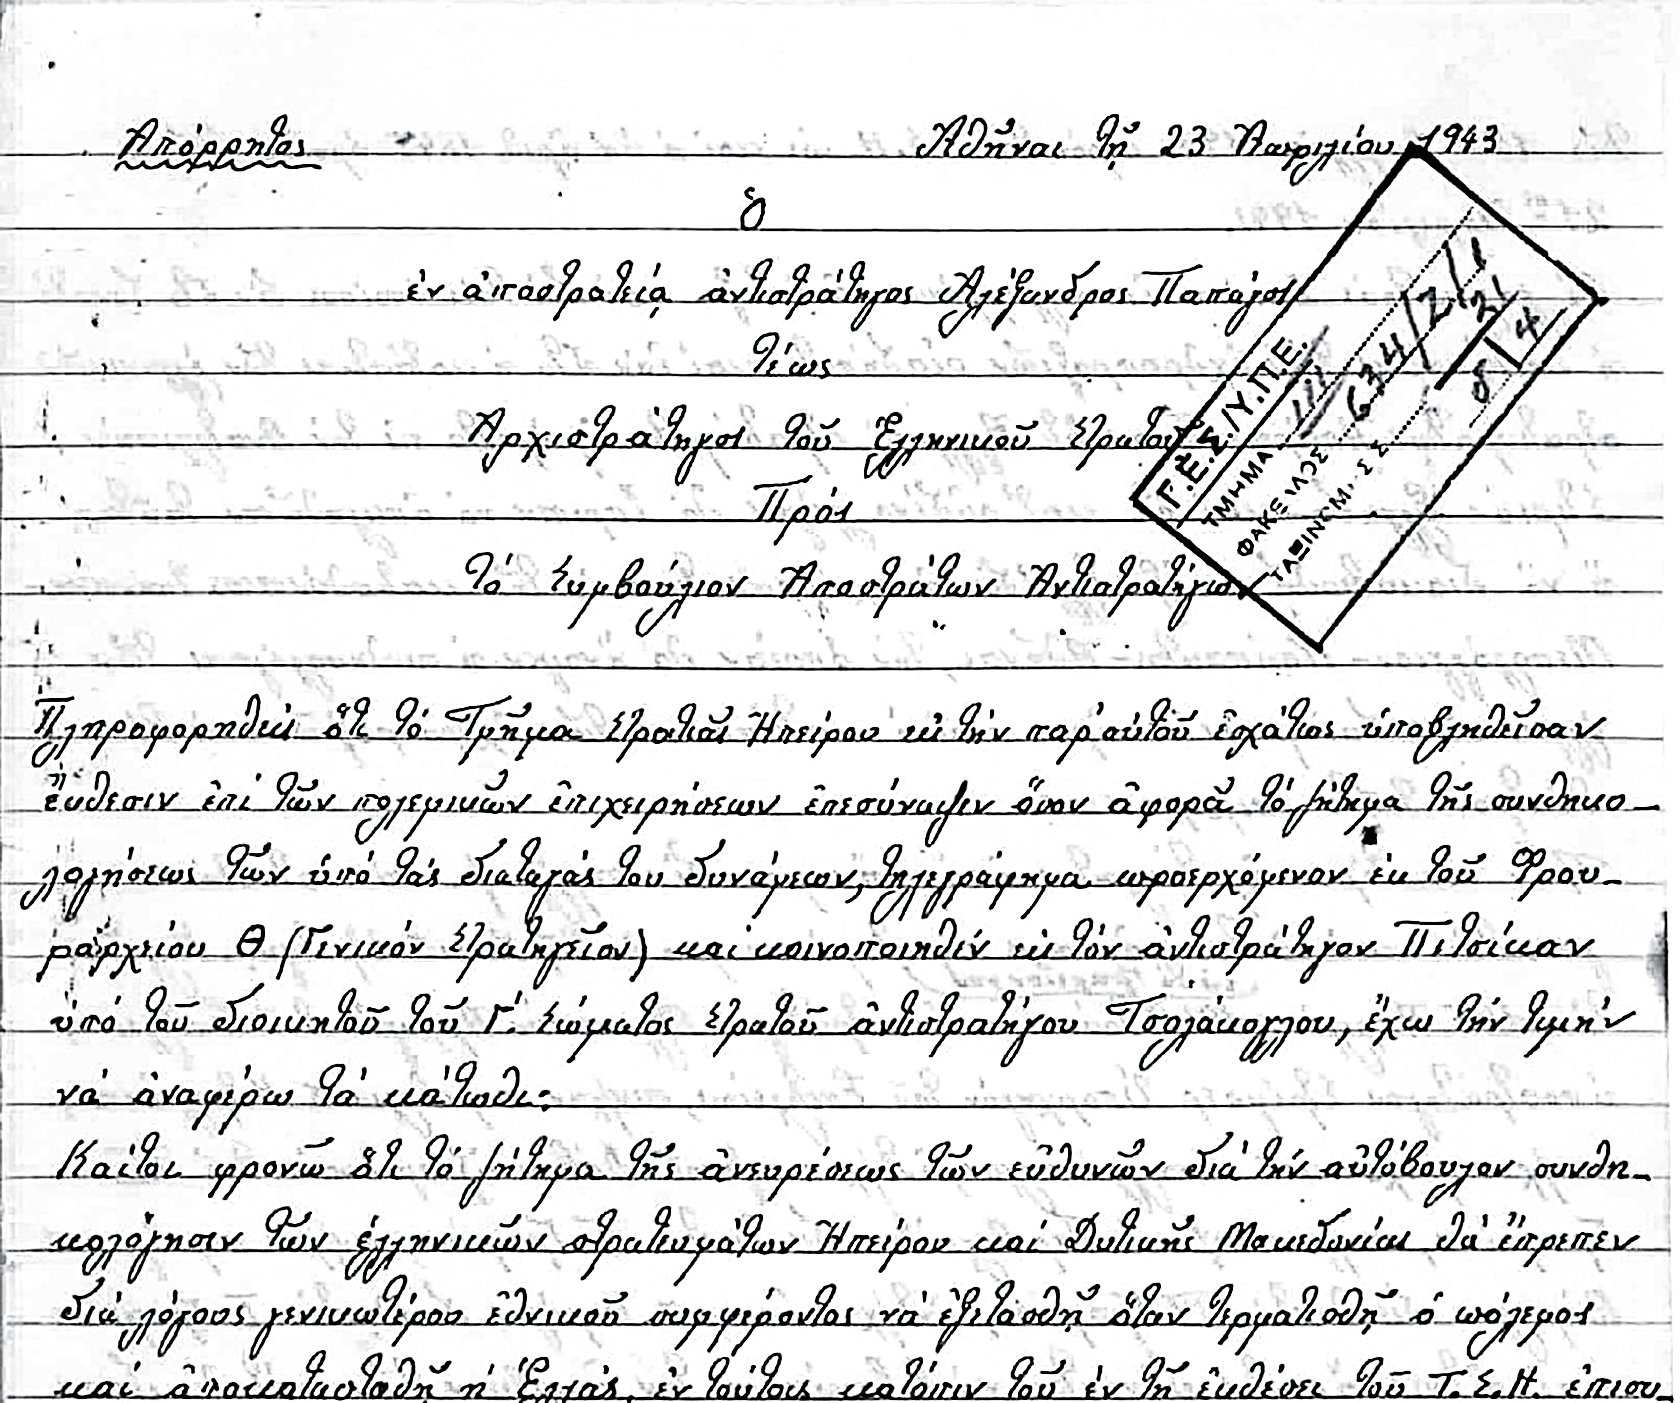 Ἀπόρρητος
Ἀθῆναι τῇ 23 Ἀπριλίου 1943
Ὁ
ἐν ἀποστρατείᾳ ἀντιστράτηγος Ἀλέξανδρος Παπάγος
τέως
Ἀρχιστράτηγος τοῦ Ἑλληνικοῦ Στρατοῦ
Πρός
τό Συμβούλιον Ἀποστράτων Ἀντιστρατήγων
Γ.Ε.Σ/Υ.Π.Ε.
ΤΜΗΜΑ III
ΦΑΚΕΛΛΟΣ 634/2/1
Πληροφορηθείς ὅτι τό Τμῆμα Στρατιᾶς Ἠπείρου εἰς τήν παρ' αὐτοῦ ἐσχάτως ὑποβληθεῖσαν
ἔκθεσιν ἐπί τῶν πολεμικῶν ἐπιχειρήσεων ἐπεσύναψεν ὅσον ἀφορᾶ τό ζήτημα τῆς συνθηκο-
λογήσεως τῶν ὑπό τάς διαταγάς του δυνάμεων, τηλεγράφημα προερχόμενον ἐκ τοῦ Φρου-
ραρχείου Θ (Γενικόν Στρατηγεῖον) καί κοινοποιηθέν εἰς τόν ἀντιστράτηγον Πιτσίκαν
ὑπό τοῦ διοικητοῦ τοῦ Γ΄. Σώματος Στρατοῦ ἀντιστρατήγου Τσολάκογλου, ἔχω τήν τιμήν
νά ἀναφέρω τά κάτωθι:
Καίτοι φρονῶ ὅτι τό ζήτημα τῆς ἀνευρέσεως τῶν εὐθυνῶν διά τήν αὐτόβουλον συνθη-
κολόγησιν τῶν ἑλληνικῶν στρατευμάτων Ἠπείρου καί Δυτικῆς Μακεδονίας θά ἔπρεπεν
διά λόγους γενικωτέρου ἐθνικοῦ συμφέροντος νά ἐξετασθῇ ὅταν τερματισθῇ ὁ πόλεμος
καί ἀποκατασταθῇ ἡ Ἑλλάς, ἐν τούτοις κατόπιν τοῦ ἐν τῇ ἐκθέσει τοῦ Τ.Σ.Η. ἐπισυ-